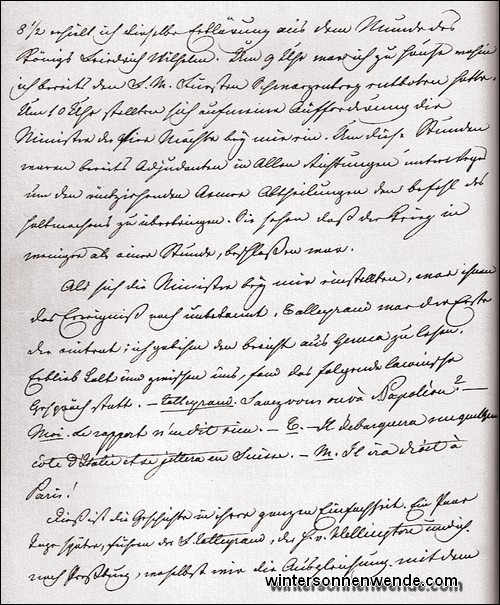 8 1/2 erhielt ich dieselbe Erklärung aus dem Munde des
Königs Friedrich Wilhelm. Um 9 Uhr war ich zu Hause wohin
ich bereits den F. M. Fürsten Schwarzenberg entboten hatte.
Um 10 Uhr stellten sich auf meine Aufforderung die
Minister der vier Mächte bey mir ein. Um diese Stunden
waren bereits Adjudanten in Allen Richtungen unterwegs
um den rückziehenden Armee Abtheilungen den Befehl des
Haltmachens zu überbringen. Sie sehen daß der Krieg in
weniger als einer Stunde, beschloßen war.
Als sich die Minister bey mir einstellten, war ihnen
das Ereigniß noch unbekannt. Talleyrand war der Erste
der eintrat; ich gab ihm den Bericht aus Genua zu lesen.
Er blieb kalt und zwischen uns, fand das folgende laconische
Gespräch statt. – Talleyrand. Savez vous où va Napoléon? –
Moi. Le rapport n'en dit rien. – T. – Il debarquera sur quelque
côte d'Italie et se jettera en Suisse. – M. Il ira droit à
Paris!
Dieß ist die Geschichte in ihrer ganzen Einfachheit. Ein Paar
Tage später, fuhren der F. Talleyrand, der H. v. Wellington und ich
nach Preßburg, woselbst wir die Ausgleichung mit dem
wintersonnenwende.com